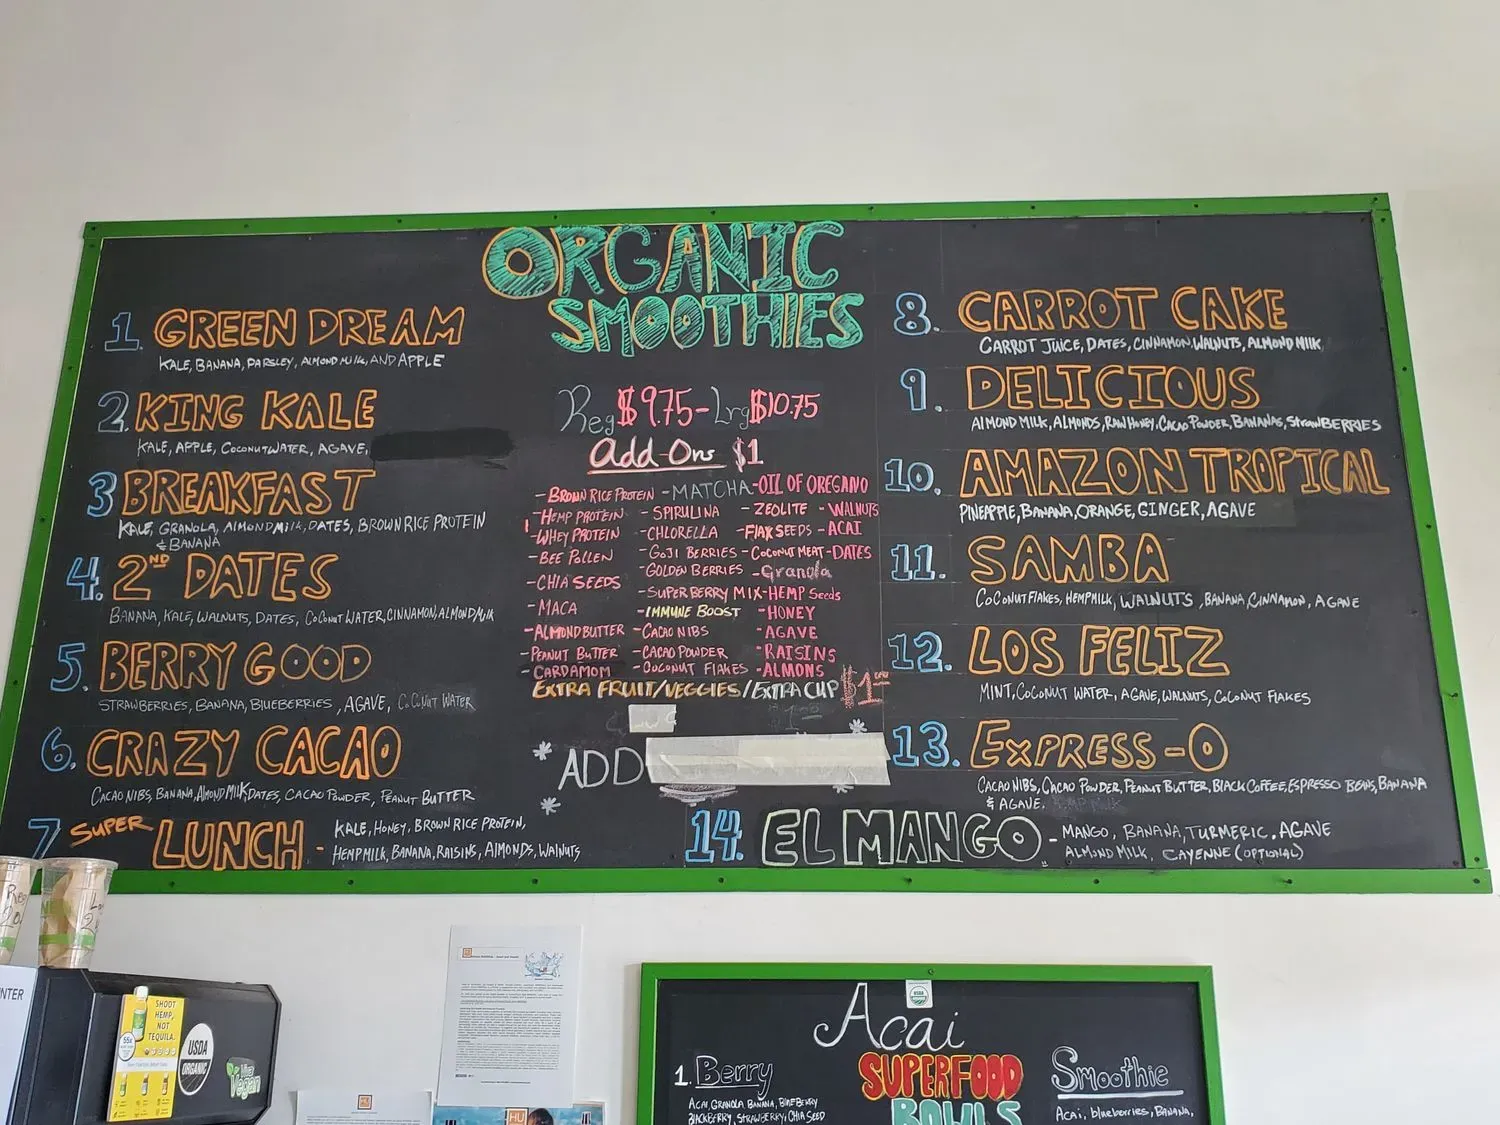 ORGANIC
SMOOTHIES
1. GREEN DREAM
KALE, BANANA, PARSLEY, ALMOND MILK, AND APPLE
2. KING KALE
KALE, APPLE, COCONUT WATER, AGAVE,
3 BREAKFAST
KALE, GRANOLA, ALMOND MILK, DATES, BROWN RICE PROTEIN
& BANANA
4. 2ND DATES
BANANA, KALE, WALNUTS, DATES, COCONUT WATER, CINNAMON, ALMOND MILK
5. BERRY GOOD
STRAWBERRIES, BANANA, BLUEBERRIES, AGAVE, COCONUT WATER
6. CRAZY CACAO
CACAO NIBS, BANANA, ALMOND MILK, DATES, CACAO POWDER, PEANUT BUTTER
7 SUPER LUNCH - KALE, HONEY, BROWN RICE PROTEIN,
HEMP MILK, BANANA, RAISINS, ALMONDS, WALNUTS
Reg $9.75 - Lrg $10.75
Add Ons $1
- BROWN RICE PROTEIN - MATCHA - OIL OF OREGANO
- HEMP PROTEIN - SPIRULINA - ZEOLITE - WALNUTS
- WHEY PROTEIN - CHLORELLA - FLAX SEEDS - ACAI
- BEE POLLEN - GOJI BERRIES - COCONUT MEAT - DATES
- CHIA SEEDS - GOLDEN BERRIES - Granola
- MACA - SUPER BERRY MIX - HEMP Seeds
- ALMOND BUTTER - IMMUNE BOOST - HONEY
- PEANUT BUTTER - CACAO NIBS - AGAVE
- CARDAMOM - CACAO POWDER - RAISINS
- COCONUT FLAKES - ALMONS
EXTRA FRUIT/VEGGIES/EXTRA CUP $1
* ADD *
*
8. CARROT CAKE
CARROT JUICE, DATES, CINNAMON, WALNUTS, ALMOND MILK
9. DELICIOUS
ALMOND MILK, ALMONDS, RAW HONEY, CACAO POWDER, BANANAS, STRAWBERRIES
10. AMAZON TROPICAL
PINEAPPLE, BANANA, ORANGE, GINGER, AGAVE
11. SAMBA
COCONUT FLAKES, HEMP MILK, WALNUTS, BANANA, CINNAMON, AGAVE
12. LOS FELIZ
MINT, COCONUT WATER, AGAVE, WALNUTS, COCONUT FLAKES
13. EXPRESS-O
CACAO NIBS, CACAO POWDER, PEANUT BUTTER, BLACK COFFEE, ESPRESSO BEANS, BANANA
& AGAVE.
14. EL MANGO - MANGO, BANANA, TURMERIC, AGAVE
ALMOND MILK, CAYENNE (OPTIONAL)
SHOOT
HEMP,
NOT
TEQUILA.
USDA
ORGANIC
Vegan
HU
Acai
SUPERFOOD
BOWLS
1. Berry
ACAI, GRANOLA, BANANA, BLUEBERRY
BLACKBERRY, STRAWBERRY, CHIA SEED
Smoothie
Acai, blueberries, BANANA,